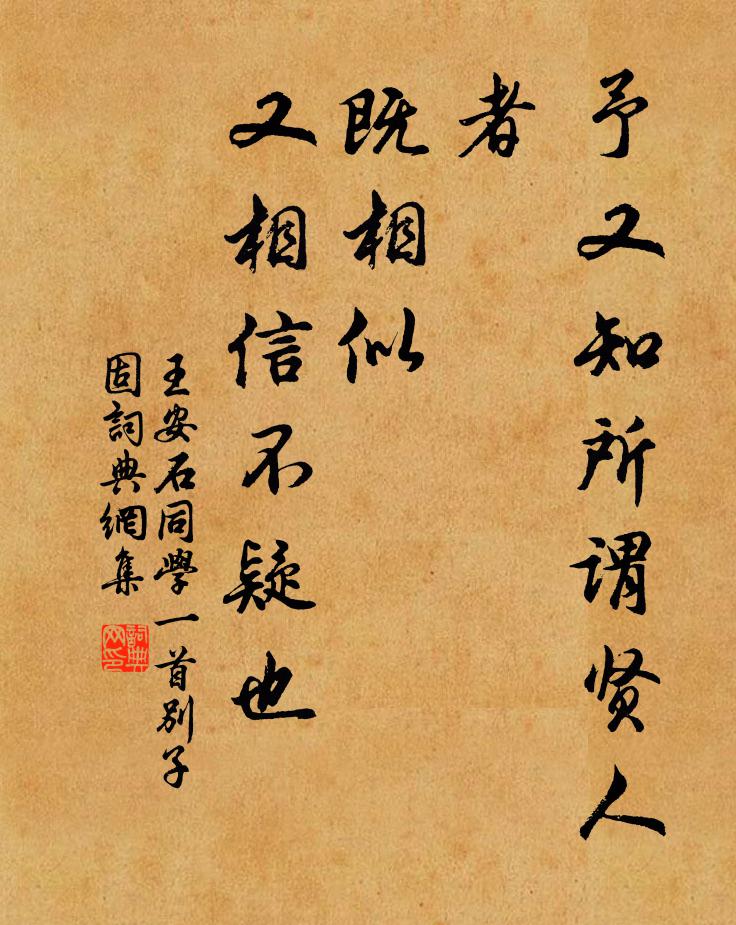 予又知所谓贤人
者
既相似
又相信不疑也
王安石同學一首别子
固詞典網集
詞典
网印